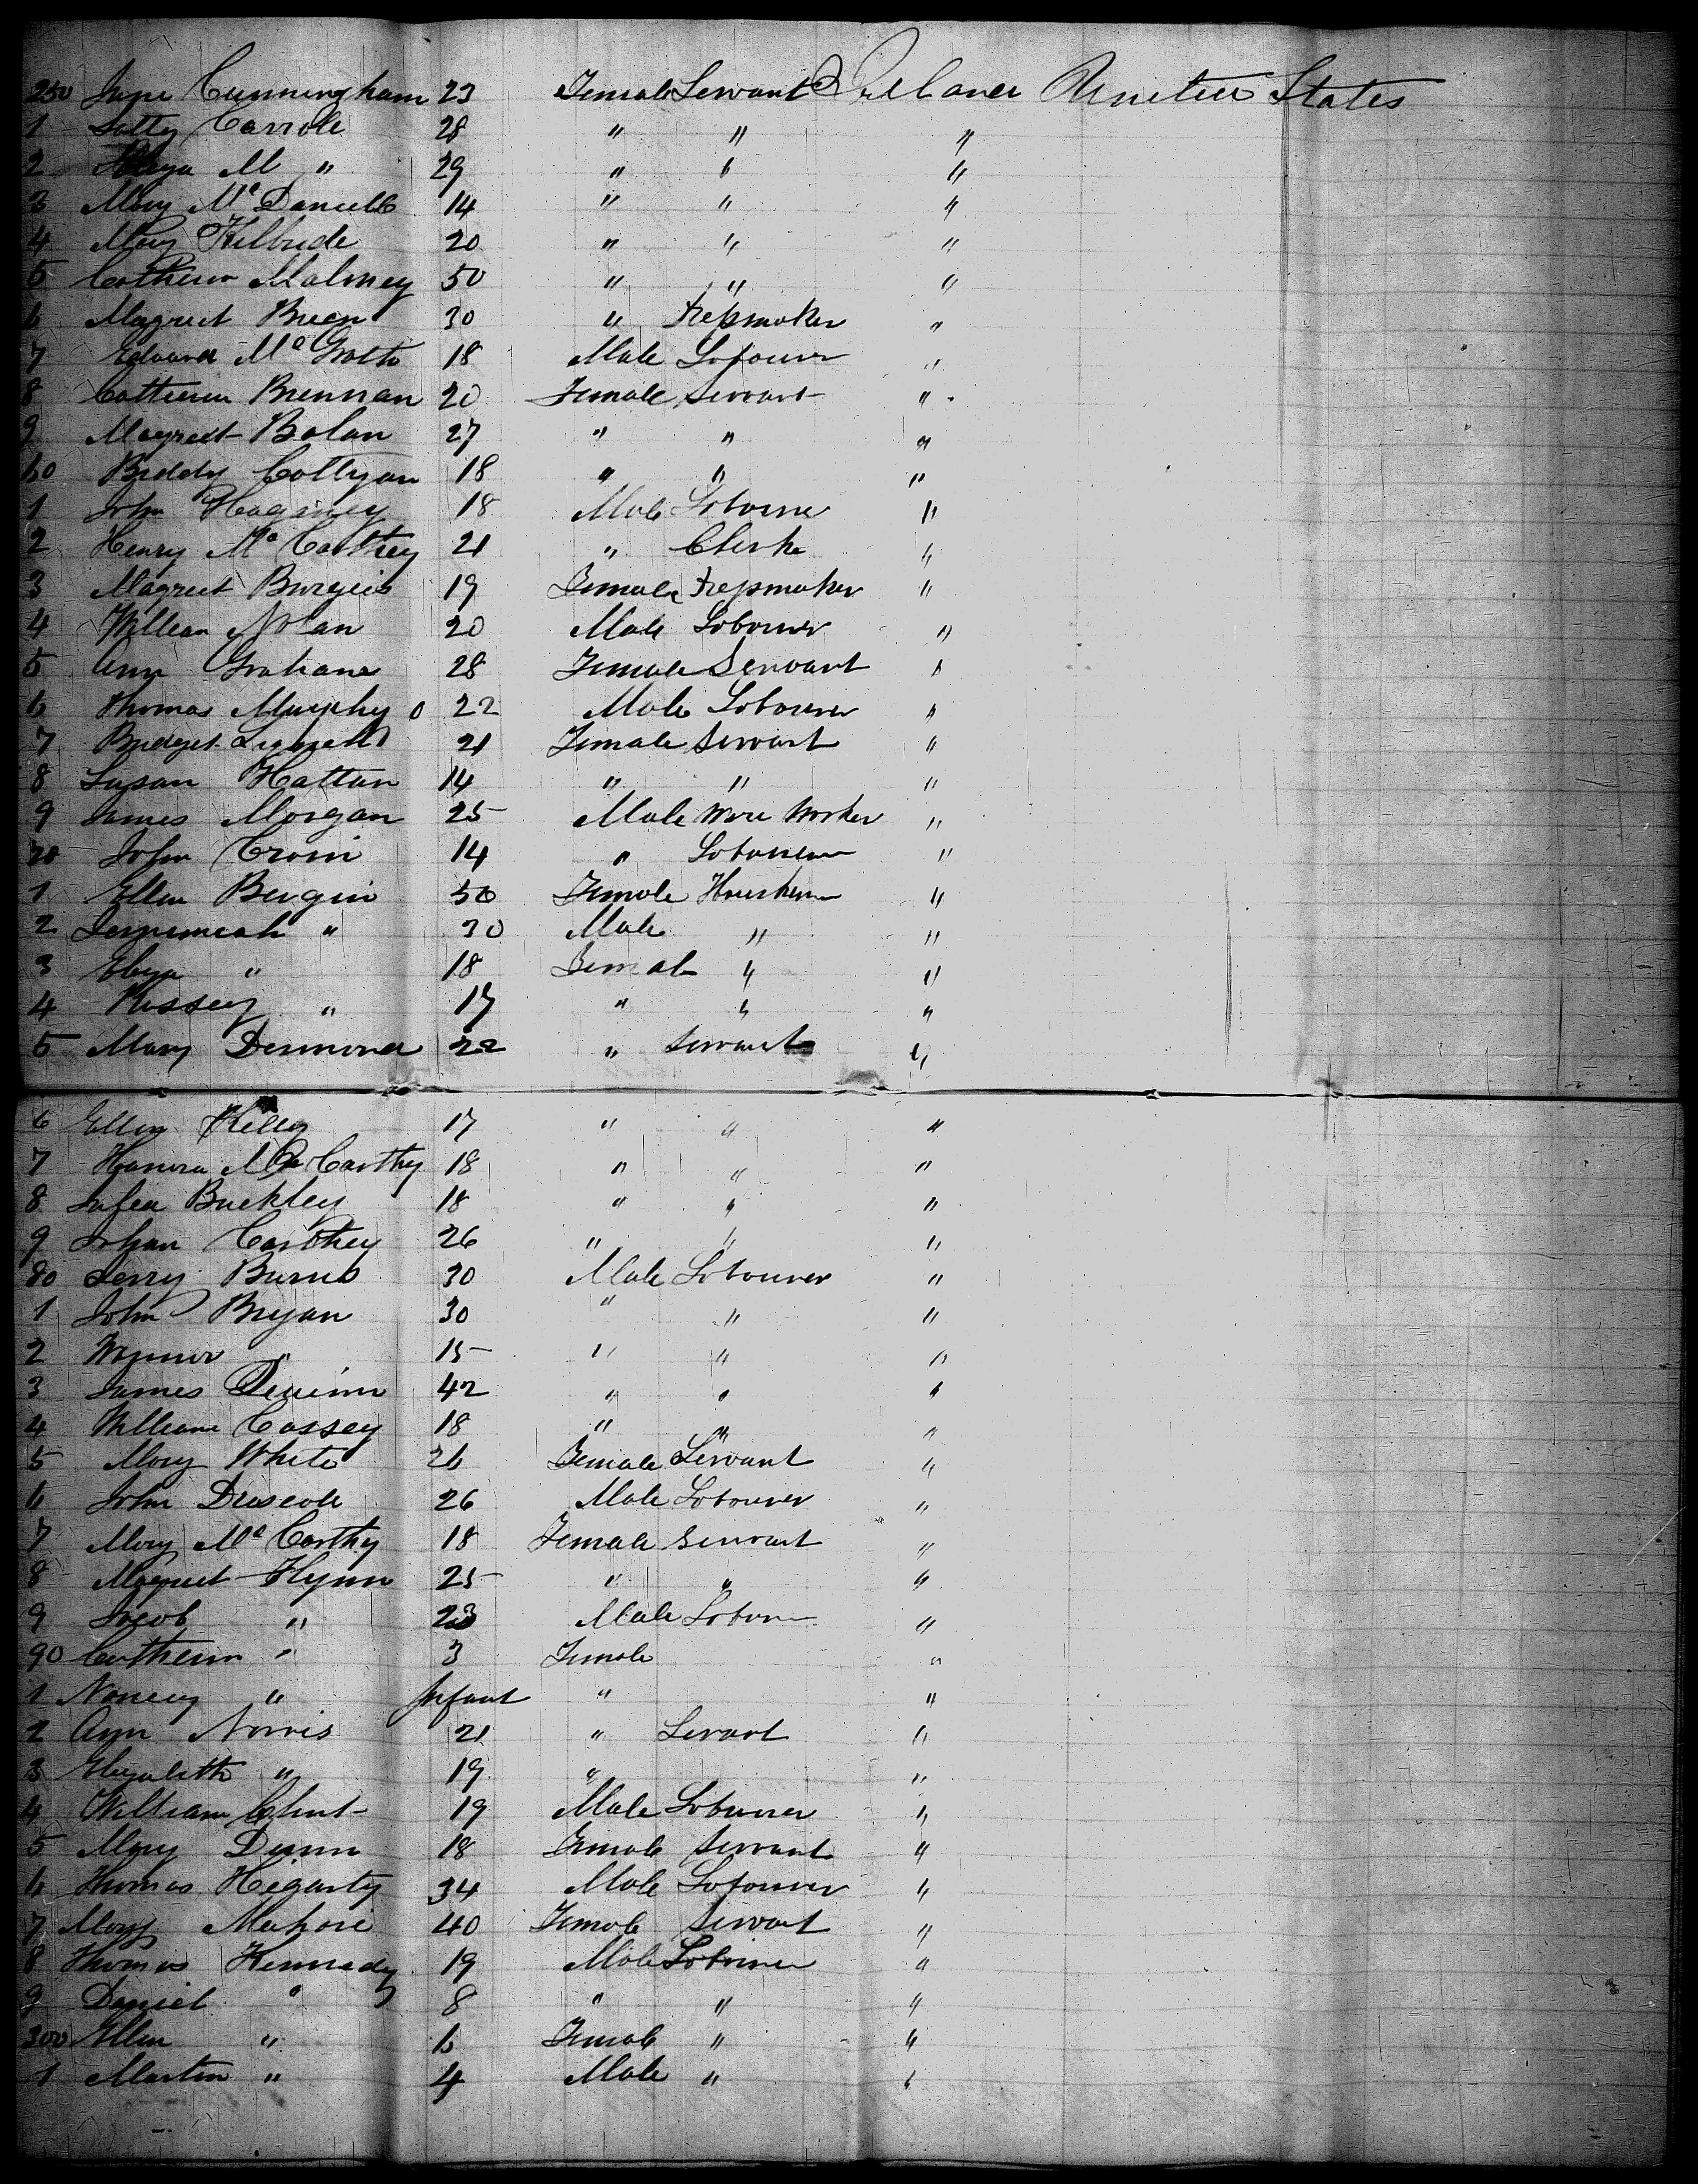 250 Jane Cunningham 23 Female Servant Ireland United States
1 Carrole 28 " " "
2 M " 29 " " "
3 Mary Mc Daniell 14 " " "
4 Mary Kilbride 20 " " "
5 Catherin Maloney 50 " " "
6 Magreet Breen 30 " Dressmaker "
7 Edward Mc Grath 18 Male Labourer "
8 Catherin Brennan 20 Female Servant "
9 Magreet Bolan 27 " " "
60 Biddy 18 " " "
1 John 18 Male Labourer "
2 Henry Mc Carthey 21 " Clerke "
3 Magreet Burgess 19 Female Dressmaker "
4 William Nolan 20 Male Labourer "
5 Ann Grahame 28 Female Servant "
6 Thomas Murphy 22 Male Labourer "
7 Bridget 21 Female Servant "
8 Susan Hattan 14 " " "
9 James Morgan 25 Male Wire Worker "
70 John Cronin 14 " Labourer "
1 Ellen Bergin 50 Female "
2 " 30 Male " "
3 Eliza " 18 Female " "
4 " 17 " " "
5 Mary Desmond 22 " Servant "
6 Ellen Kelly 17 " " "
7 Hanora Mc Carthy 18 " " "
8 Buckley 18 " " "
9 Johan Carthey 26 " " "
80 Jerry Burns 30 Male Labourer "
1 John Bryan 30 " " "
2 " 15 " " "
3 James 42 " " "
4 William Cassey 18 " " "
5 Mary White 26 Female Servant "
6 John Driscole 26 Male Labourer "
7 Mary Mc Carthy 18 Female Servant "
8 Magreet Flynn 25 " " "
9 Jacob " 23 Male Labourer "
90 Catherin " 3 Female "
1 Nancy " Infant " "
2 Ann Norris 21 " Servant "
3 Elizabeth " 19 " "
4 William Clint 19 Male Labourer "
5 Mary Dunn 18 Female Servant "
6 Thomas Hegarty 34 Male Labourer "
7 Mary Mahore 40 Female Servant "
8 Thomas Kennedy 19 Male Labourer "
9 Daniel " 8 " " "
300 Ellen " 6 Female " "
1 Martin " 4 Male " "